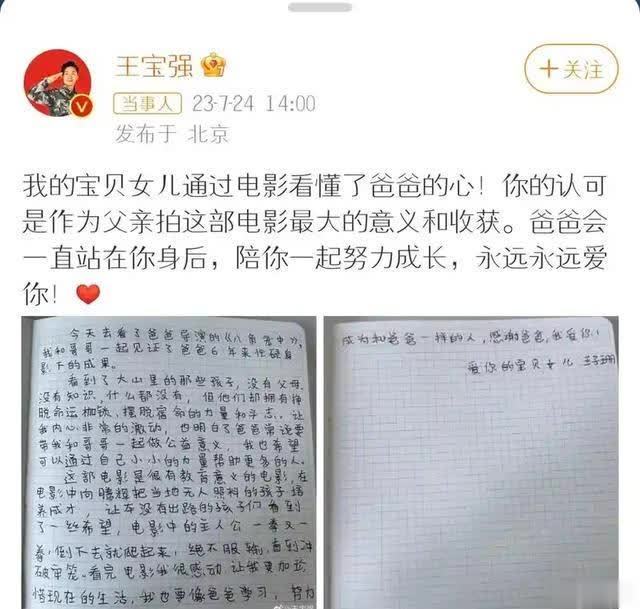 王宝强
当事人 23-7-24 14:00
发布于 北京
+关注
我的宝贝女儿通过电影看懂了爸爸的心！你的认可
是作为父亲拍这部电影最大的意义和收获。爸爸会
一直站在你身后，陪你一起努力成长，永远永远爱
你！
今天去看了爸爸导演的《八角笼中》,
我和哥哥一起见证了爸爸6年来在硬身
影下的成果。
看到了大山里的那些孩子，没有父母，
没有知识，什么都没有，但他们却拥有挣
脱命运枷锁、摆脱宿命的力量和斗志。让
我内心非常的激动，也明白了爸爸常说要
带我和哥哥一起做公益意义，我也希望
可以通过自己小小的力量帮助更多的人。
这部电影是很有教育意义的电影，在
电影中向腾辉把当地无人照料的孩子培
养成才，让本没有出路的孩子们看到
了一丝希望，电影中的主人公一拳又一
拳，倒下去就爬起来，绝不服输，直到冲
破牢笼。看完电影我很感动，让我更加珍
惜现在的生活，我也要像爸爸学习，努力
成为和爸爸一样的人，感谢爸爸，我爱你！
爱你的宝贝女儿